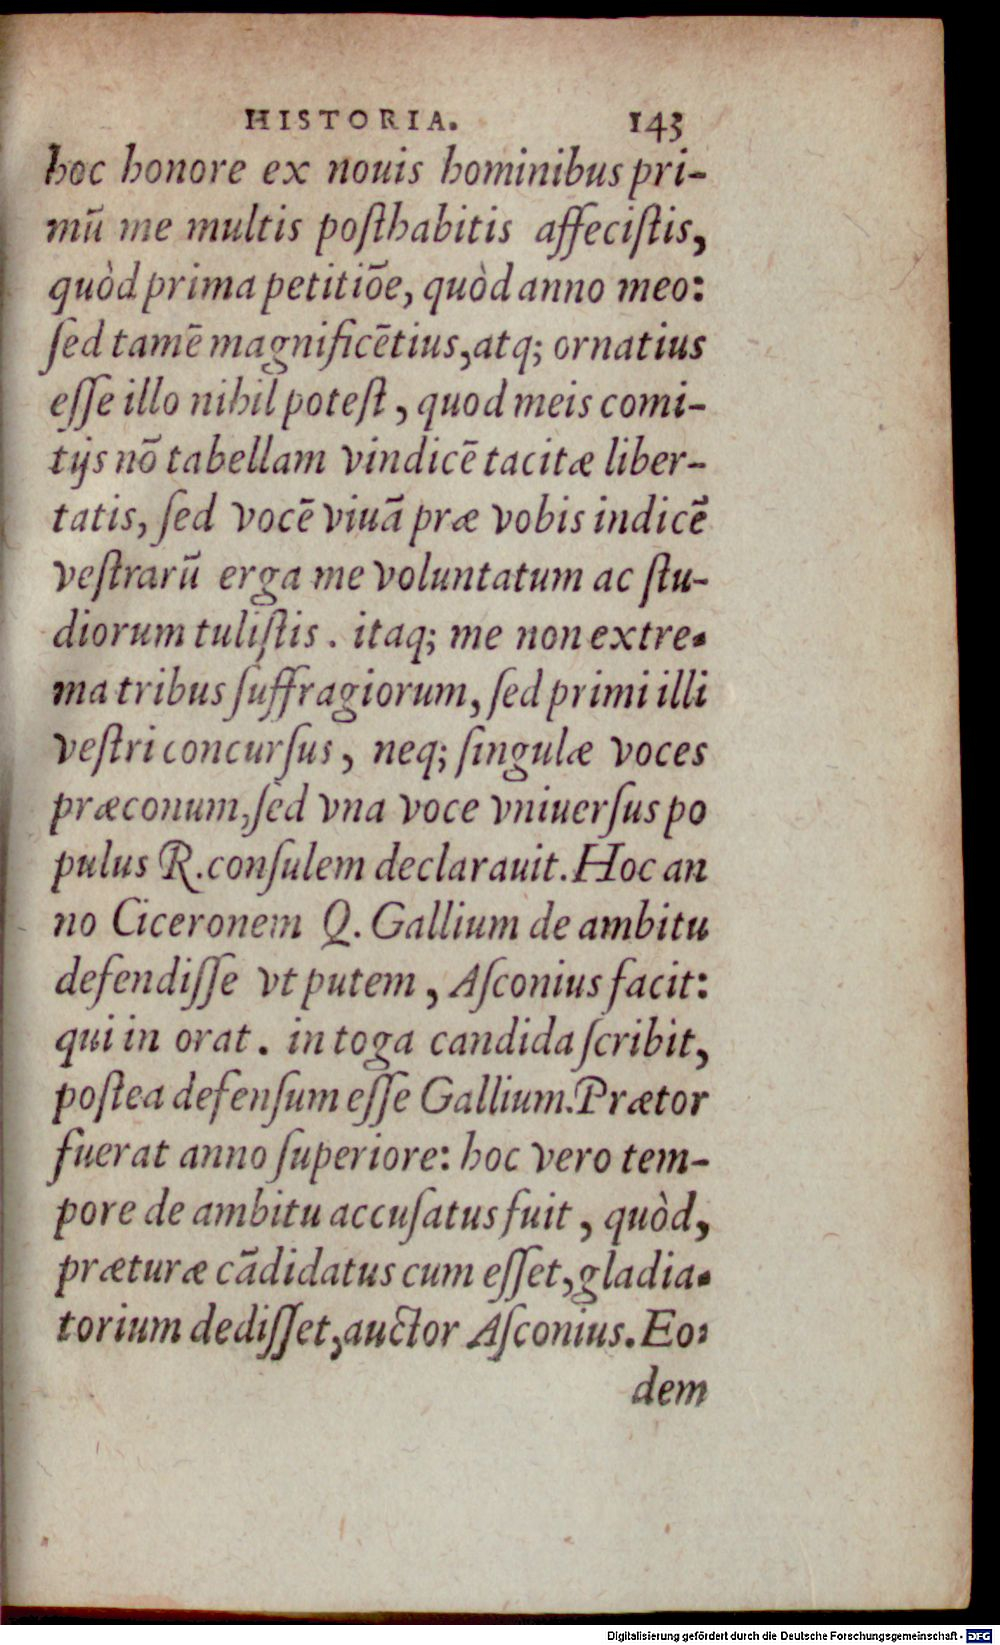 HISTORIA. 143
hoc honore ex nouis hominibus pri-
mū me multis poſthabitis affeciſtis,
quòd prima petitiōe, quòd anno meo:
ſed tamē magnificētius, atq; ornatius
eſſe illo nihil poteſt, quod meis comi-
tijs nō tabellam vindicē tacitæ liber-
tatis, ſed vocē viuā præ vobis indicē
veſtrarū erga me voluntatum ac ſtu-
diorum tuliſtis. itaq; me non extre-
ma tribus ſuffragiorum, ſed primi illi
veſtri concurſus, neq; ſingulæ voces
præconum, ſed vna voce vniuerſus po
pulus R. conſulem declarauit. Hoc an
no Ciceronem Q. Gallium de ambitu
defendiſſe vt putem, Aſconius facit:
qui in orat. in toga candida ſcribit,
poſtea defenſum eſſe Gallium. Prætor
fuerat anno ſuperiore: hoc vero tem-
pore de ambitu accuſatus fuit, quòd,
præturæ cādidatus cum eſſet, gladia-
torium dediſſet, auctor Aſconius. Eo-
dem
Digitalisierung gefördert durch die Deutsche Forschungsgemeinschaft - DFG